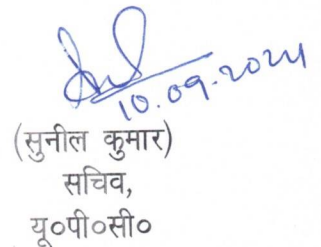 10.09.2024
(सुनील कुमार)
सचिव,
यू०पी०सी०